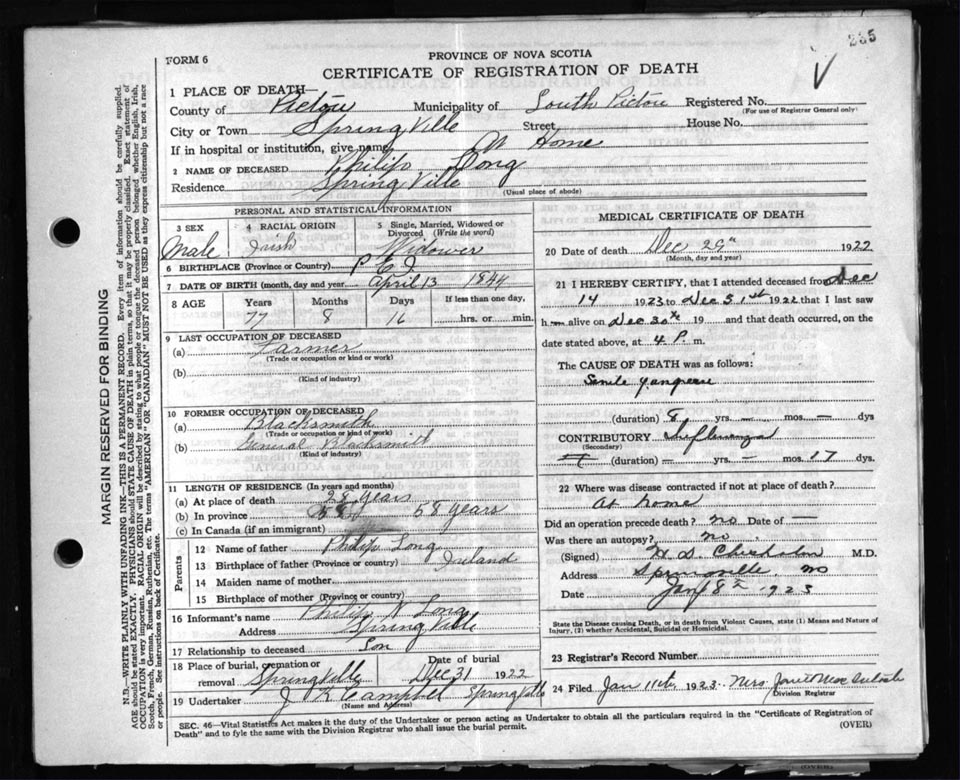 235
FORM 6
PROVINCE OF NOVA SCOTIA
CERTIFICATE OF REGISTRATION OF DEATH
V
1 PLACE OF DEATH—
County of Pictou Municipality of South Pictou Registered No.
(For use of Registrar General only)
City or Town Spring Ville Street House No.
If in hospital or institution, give name At Home
2 NAME OF DECEASED Philip Long
Residence Spring Ville
(Usual place of abode)
PERSONAL AND STATISTICAL INFORMATION
3 SEX Male
4 RACIAL ORIGIN Irish
5 Single, Married, Widowed or Divorced (Write the word) Widower
6 BIRTHPLACE (Province or Country) P E I
7 DATE OF BIRTH (month, day and year) April 13 1844
8 AGE Years Months Days If less than one day,
77 8 16 hrs. or min.
9 LAST OCCUPATION OF DECEASED
(a) Farmer
(Trade or occupation or kind or work)
(b)
(Kind of industry)
10 FORMER OCCUPATION OF DECEASED
(a) Blacksmith
(Trade or occupation or kind of work)
(b) General Blacksmith
(Kind of industry)
11 LENGTH OF RESIDENCE (In years and months)
(a) At place of death 28 years
(b) In province 58 years
(c) In Canada (if an immigrant)
Parents
12 Name of father Philip Long
13 Birthplace of father (Province or country) Ireland
14 Maiden name of mother
15 Birthplace of mother (Province or Country)
16 Informant's name Philip Long
Address Spring Ville
17 Relationship to deceased Son
18 Place of burial, cremation or removal Springville
Date of burial Dec 31 1922
19 Undertaker J K Campbell Springville
(Name and Address)
MEDICAL CERTIFICATE OF DEATH
20 Date of death Dec 29th 1922
(Month, day and year)
21 I HEREBY CERTIFY, that I attended deceased from Dec
14 1923 to Dec 31st 1922 that I last saw
h alive on Dec 30th 19 and that death occurred, on
date stated above, at 4. P. m.
The CAUSE OF DEATH was as follows:
Senile
(duration) yrs. — mos. — dys
CONTRIBUTORY Influenza
(Secondary)
(duration) — yrs. — mos. 17 dys.
22 Where was disease contracted if not at place of death?
At home
Did an operation precede death? no Date of —
Was there an autopsy? no
(Signed) Chisholm M.D.
Address Springville
Date Jany 8th 1923
State the Disease causing Death, or in death from Violent Causes, state (1) Means and Nature of
Injury, (2) whether Accidental, Suicidal or Homicidal.
23 Registrar's Record Number
24 Filed Jan 11th 1923 Mrs
Division Registrar
SEC. 46—Vital Statistics Act makes it the duty of the Undertaker or person acting as Undertaker to obtain all the particulars required in the "Certificate of Registration of
Death" and to fyle the same with the Division Registrar who shall issue the burial permit.
(OVER)
(OVER)
MARGIN RESERVED FOR BINDING
N.B.—WRITE PLAINLY WITH UNFADING INK—THIS IS A PERMANENT RECORD. Every item of information should be carefully supplied.
AGE should be stated EXACTLY. PHYSICIANS should STATE CAUSE OF DEATH in plain terms, so that it may be properly classified. Exact statement of
OCCUPATION is very important. RACIAL ORIGIN will be described by stating to what people or tongue the deceased person belonged whether English, Irish,
Scotch, French, German, Russian, Ruthenian, etc. The terms "AMERICAN" OR "CANADIAN" MUST NOT BE USED as they express citizenship but not a race
or people. See instructions on back of Certificate.